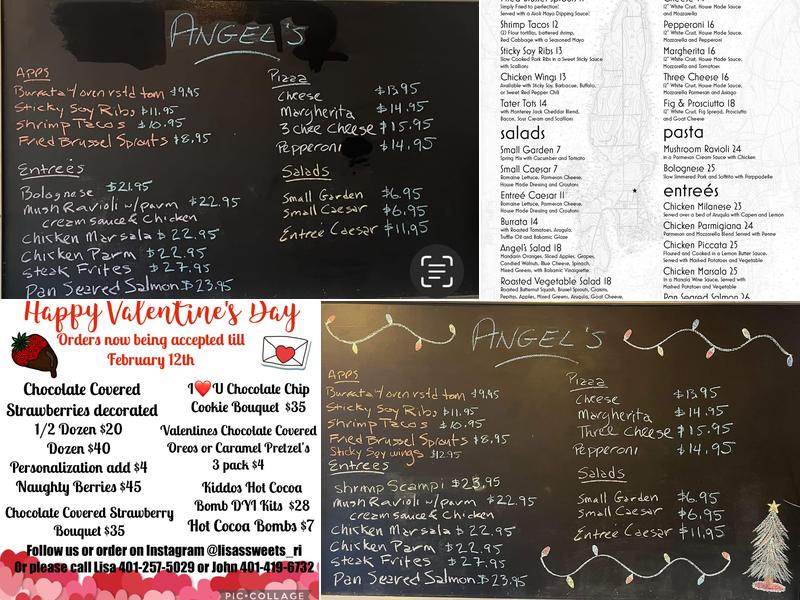 ANGEL'S
APPS
Burrata w/ oven rstd tom $9.95
Sticky Soy Ribs $11.95
Shrimp Tacos $10.95
Fried Brussel Sprouts $8.95
Entreés
Bolognese $21.95
Mush Ravioli w/parm $22.95
cream sauce & Chicken
Chicken Marsala $22.95
Chicken Parm $22.95
Steak Frites $27.95
Pan Seared Salmon $23.95
Pizza
Cheese $13.95
Margherita $14.95
3 chee Cheese $15.95
Pepperoni $14.95
Salads
Small Garden $6.95
Small Caesar $6.95
Entreé Caesar $11.95
Simply Fried to perfection!
Served with a Aioli Mayo Dipping Sauce!
Shrimp Tacos 12
(2) Flour tortillas, battered shrimp,
Red Cabbage with a Seasoned Mayo
Sticky Soy Ribs 13
Slow Cooked Pork Ribs in a Sweet Sticky Sauce
with Scallions
Chicken Wings 13
Available with Sticky Soy, Barbecue, Buffalo,
or Sweet Red Pepper Chili
Tater Tots 14
with Monterey Jack Cheddar Blend,
Bacon, Sour Cream and Scallions
salads
Small Garden 7
Spring Mix with Cucumber and Tomato
Small Caesar 7
Romaine Lettuce, Parmesan Cheese,
House Made Dressing and Croutons
Entreé Caesar 11
Romaine Lettuce, Parmesan Cheese,
House Made Dressing and Croutons
Burrata 14
with Roasted Tomatoes, Arugula,
Truffle Oil and Balsamic Glaze
Angel's Salad 18
Mandarin Oranges, Sliced Apples, Grapes,
Candied Walnuts, Blue Cheese, Spinach,
Mixed Greens, with Balsamic Vinaigrette
Roasted Vegetable Salad 18
Roasted Butternut Squash, Brussel Sprouts, Craisins,
Pepitas, Apples, Mixed Greens, Arugula, Goat Cheese,
12" White Crust, House Made Sauce
and Mozzarella
Pepperoni 16
12" White Crust, House Made Sauce,
Mozzarella and Pepperoni
Margherita 16
12" White Crust, House Made Sauce,
Mozzarella and Tomatoes
Three Cheese 16
12" White Crust, House Made Sauce,
Mozzarella, Parmesan and Asiago
Fig & Prosciutto 18
12" White Crust, Fig Spread, Prosciutto
and Goat Cheese
pasta
Mushroom Ravioli 24
in a Parmesan Cream Sauce with Chicken
Bolognese 25
Slow Simmered Pork and Soffrito with Pappardelle
entreés
Chicken Milanese 23
Served over a bed of Arugula with Capers and Lemon
Chicken Parmigiana 24
Parmesan and Mozzarella Blend Served with Penne
Chicken Piccata 25
Floured and Cooked in a Lemon Butter Sauce,
Served with Mashed Potatoes and Vegetable
Chicken Marsala 25
in a Marsala Wine Sauce, Served with
Mashed Potatoes and Vegetable
Pan Seared Salmon 26
Happy Valentine's Day
Orders now being accepted till
February 12th
Chocolate Covered
Strawberries decorated
1/2 Dozen $20
Dozen $40
Personalization add $4
Naughty Berries $45
Chocolate Covered Strawberry
Bouquet $35
I❤️U Chocolate Chip
Cookie Bouquet $35
Valentines Chocolate Covered
Oreos or Caramel Pretzel's
3 pack $4
Kiddos Hot Cocoa
Bomb DYI Kits $28
Hot Cocoa Bombs $7
Follow us or order on Instagram @lisassweets_ri
Or please call Lisa 401-257-5029 or John 401-419-6732
PIC•COLLAGE
ANGEL'S
APPS
Burrata w/ oven rstd tom $9.95
Sticky Soy Ribs $11.95
Shrimp Tacos $10.95
Fried Brussel Sprouts $8.95
Sticky Soy wings $12.95
Entreés
Shrimp Scampi $23.95
Mush Ravioli w/parm $22.95
cream sauce & Chicken
Chicken Marsala $22.95
Chicken Parm $22.95
Steak Frites $27.95
Pan Seared Salmon $23.95
Pizza
Cheese $13.95
Margherita $14.95
Three Cheese $15.95
Pepperoni $14.95
Salads
Small Garden $6.95
Small Caesar $6.95
Entreé Caesar $11.95